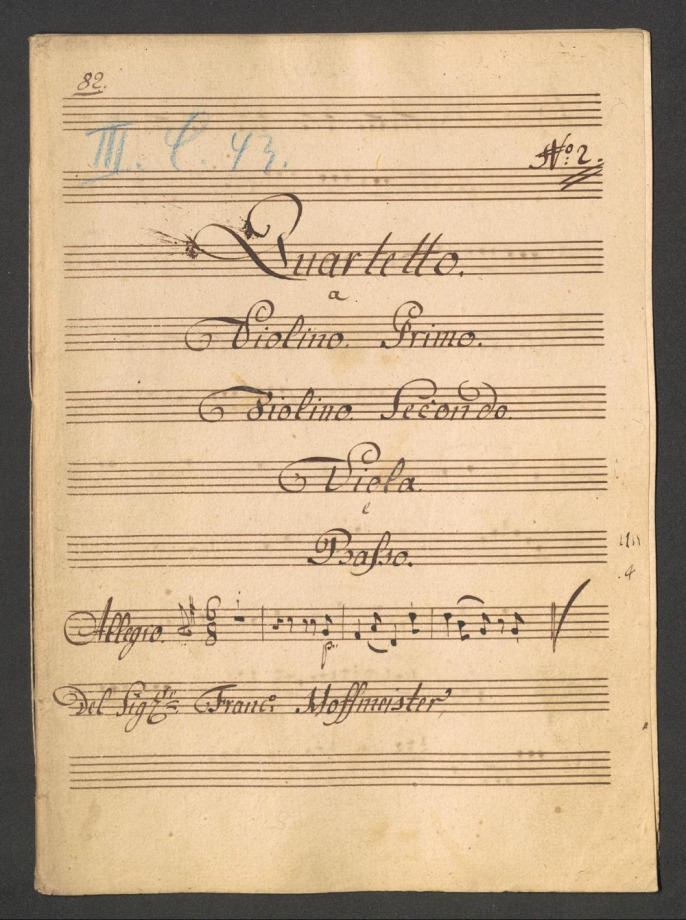 82.
III. C. 43.
No: 2.
Quartetto.
a
Violino Primo.
Violino Secondo.
Viola
e
Basso.
Allegro. 6/8 p:
Del Sigre: Franco: Hoffmeister